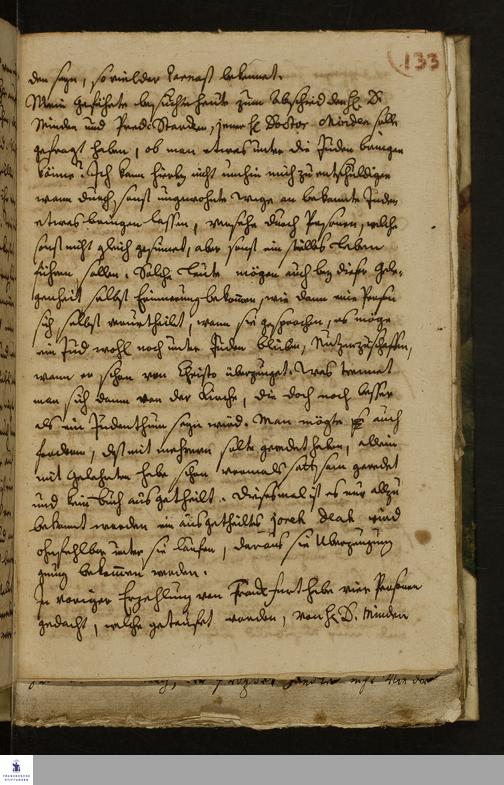 133
den seyn, so viel der bekennet.
Mein Gefährte besuchte heute zum Abschied den H. D.
Minden und Pred: Standen, jener H. Doctor Minden soll
gefragt haben, ob man etwas unter die Juden bringen
könne? Ich kan hierbey nicht umhin mich zu entschuldigen
wann durch sonst ungewohnte Wege an bekannte Juden
etwas bringen lassen, durch Personen, welche
sonst nicht gleich gesinnet, aber sonst ein stilles Leben
führen sollen. Solche Leute mögen auch bey dieser Gele-
genheit selbst Erinnerung bekommen, wie dann eine Person
sich selbst verurtheilt, wann sie gesprochen, es möge
ein Jud wohl noch unter Juden bleiben, Nutzen zu schaffen,
wann er schon von Christo überzeuget. Was trennet
man sich dann von der Kirche, die doch noch besser
als ein Judenthum seyn wird. Man möchte auch
fordern, daß mit mehrern solte geredet haben, allein
mit Gelehrten habe schon vormals sattsam geredet
und kein Buch ausgetheilt. Dieses mal ist es nur allzu
bekannt worden ein ausgetheiltes wird
ohnfehlbar unter sie laufen, daraus sie Überzeugung
gnug bekommen werden.
In voriger Erzehlung von Franckfurt habe vier Personen
gedacht, welche getaufet worden, von H. D. Minden
FRANCKESCHE
STIFTUNGEN